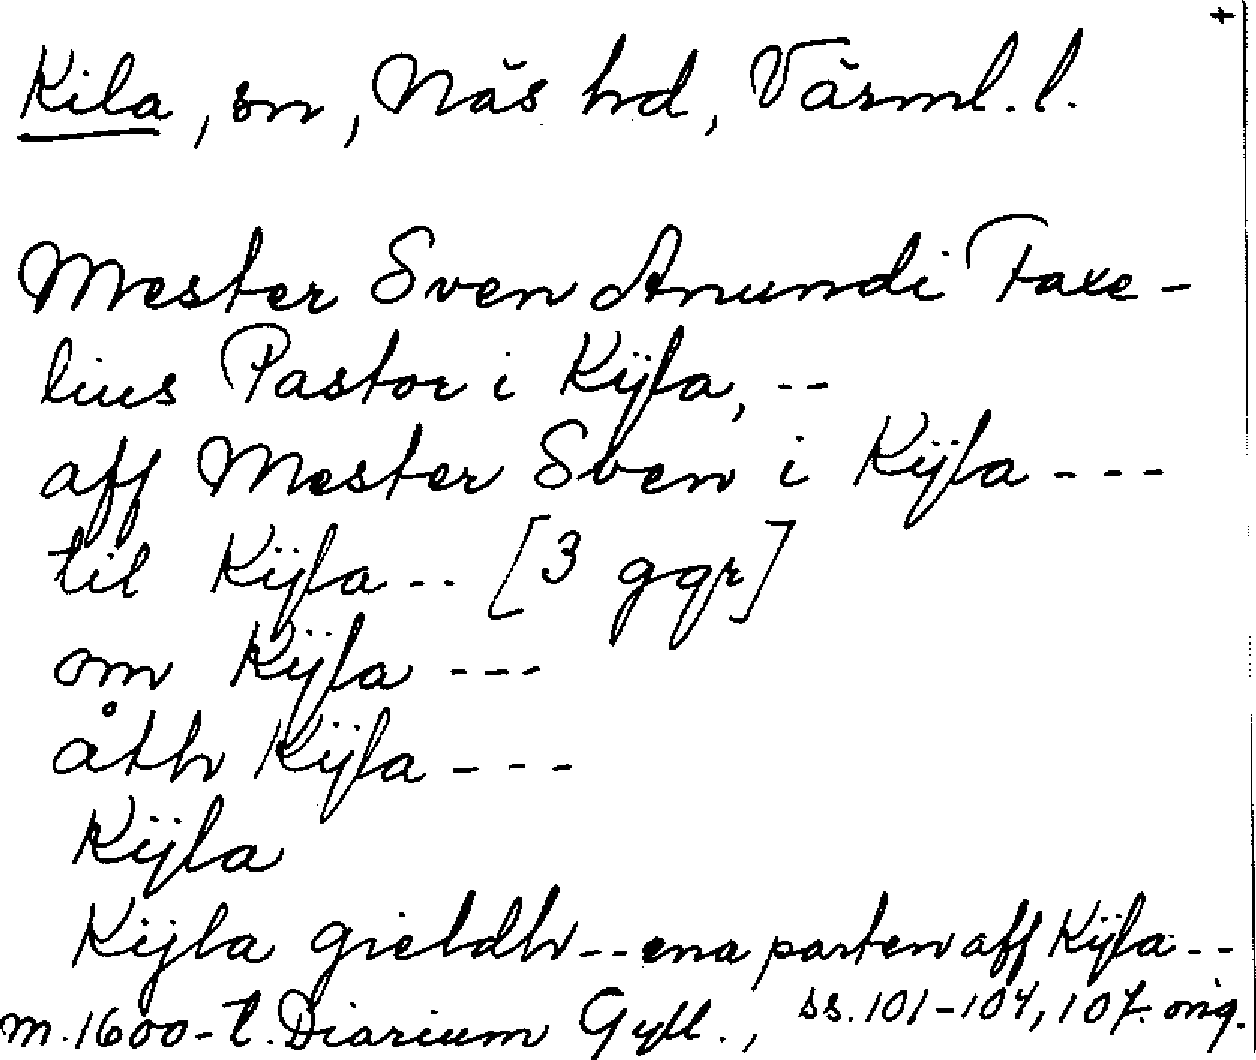 +
Kila, sn, Näs hd, Värml. l.
Mester Sven Anundi Faxe-
lius Pastor i Kijla, --
aff Mester Sven i Kijla ---
til Kijla -- [3 ggr]
om Kijla ---
åth Kijla ---
Kijla
Kijla gieldh -- ena parten aff Kijla --
m. 1600-t. Diarium Gyll., ss. 101-104, 107. orig.